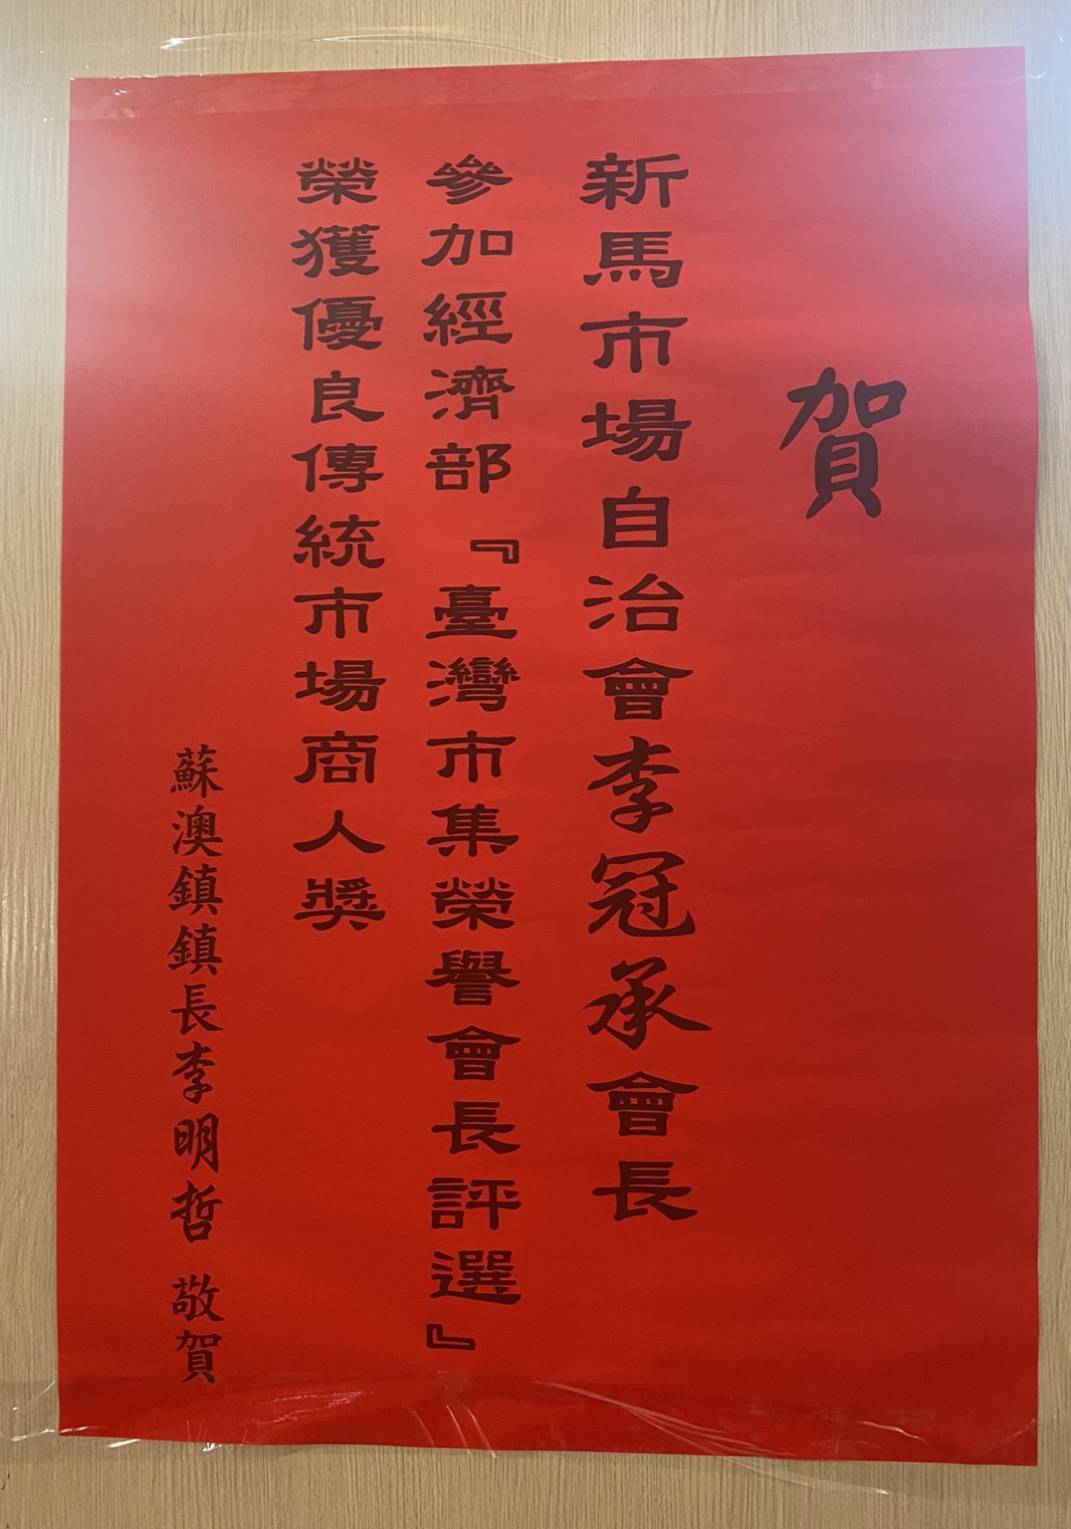 賀
新馬市場自治會李冠承會長
參加經濟部『臺灣市集榮譽會長評選』
榮獲優良傳統市場商人獎
蘇澳鎮鎮長李明哲 敬賀